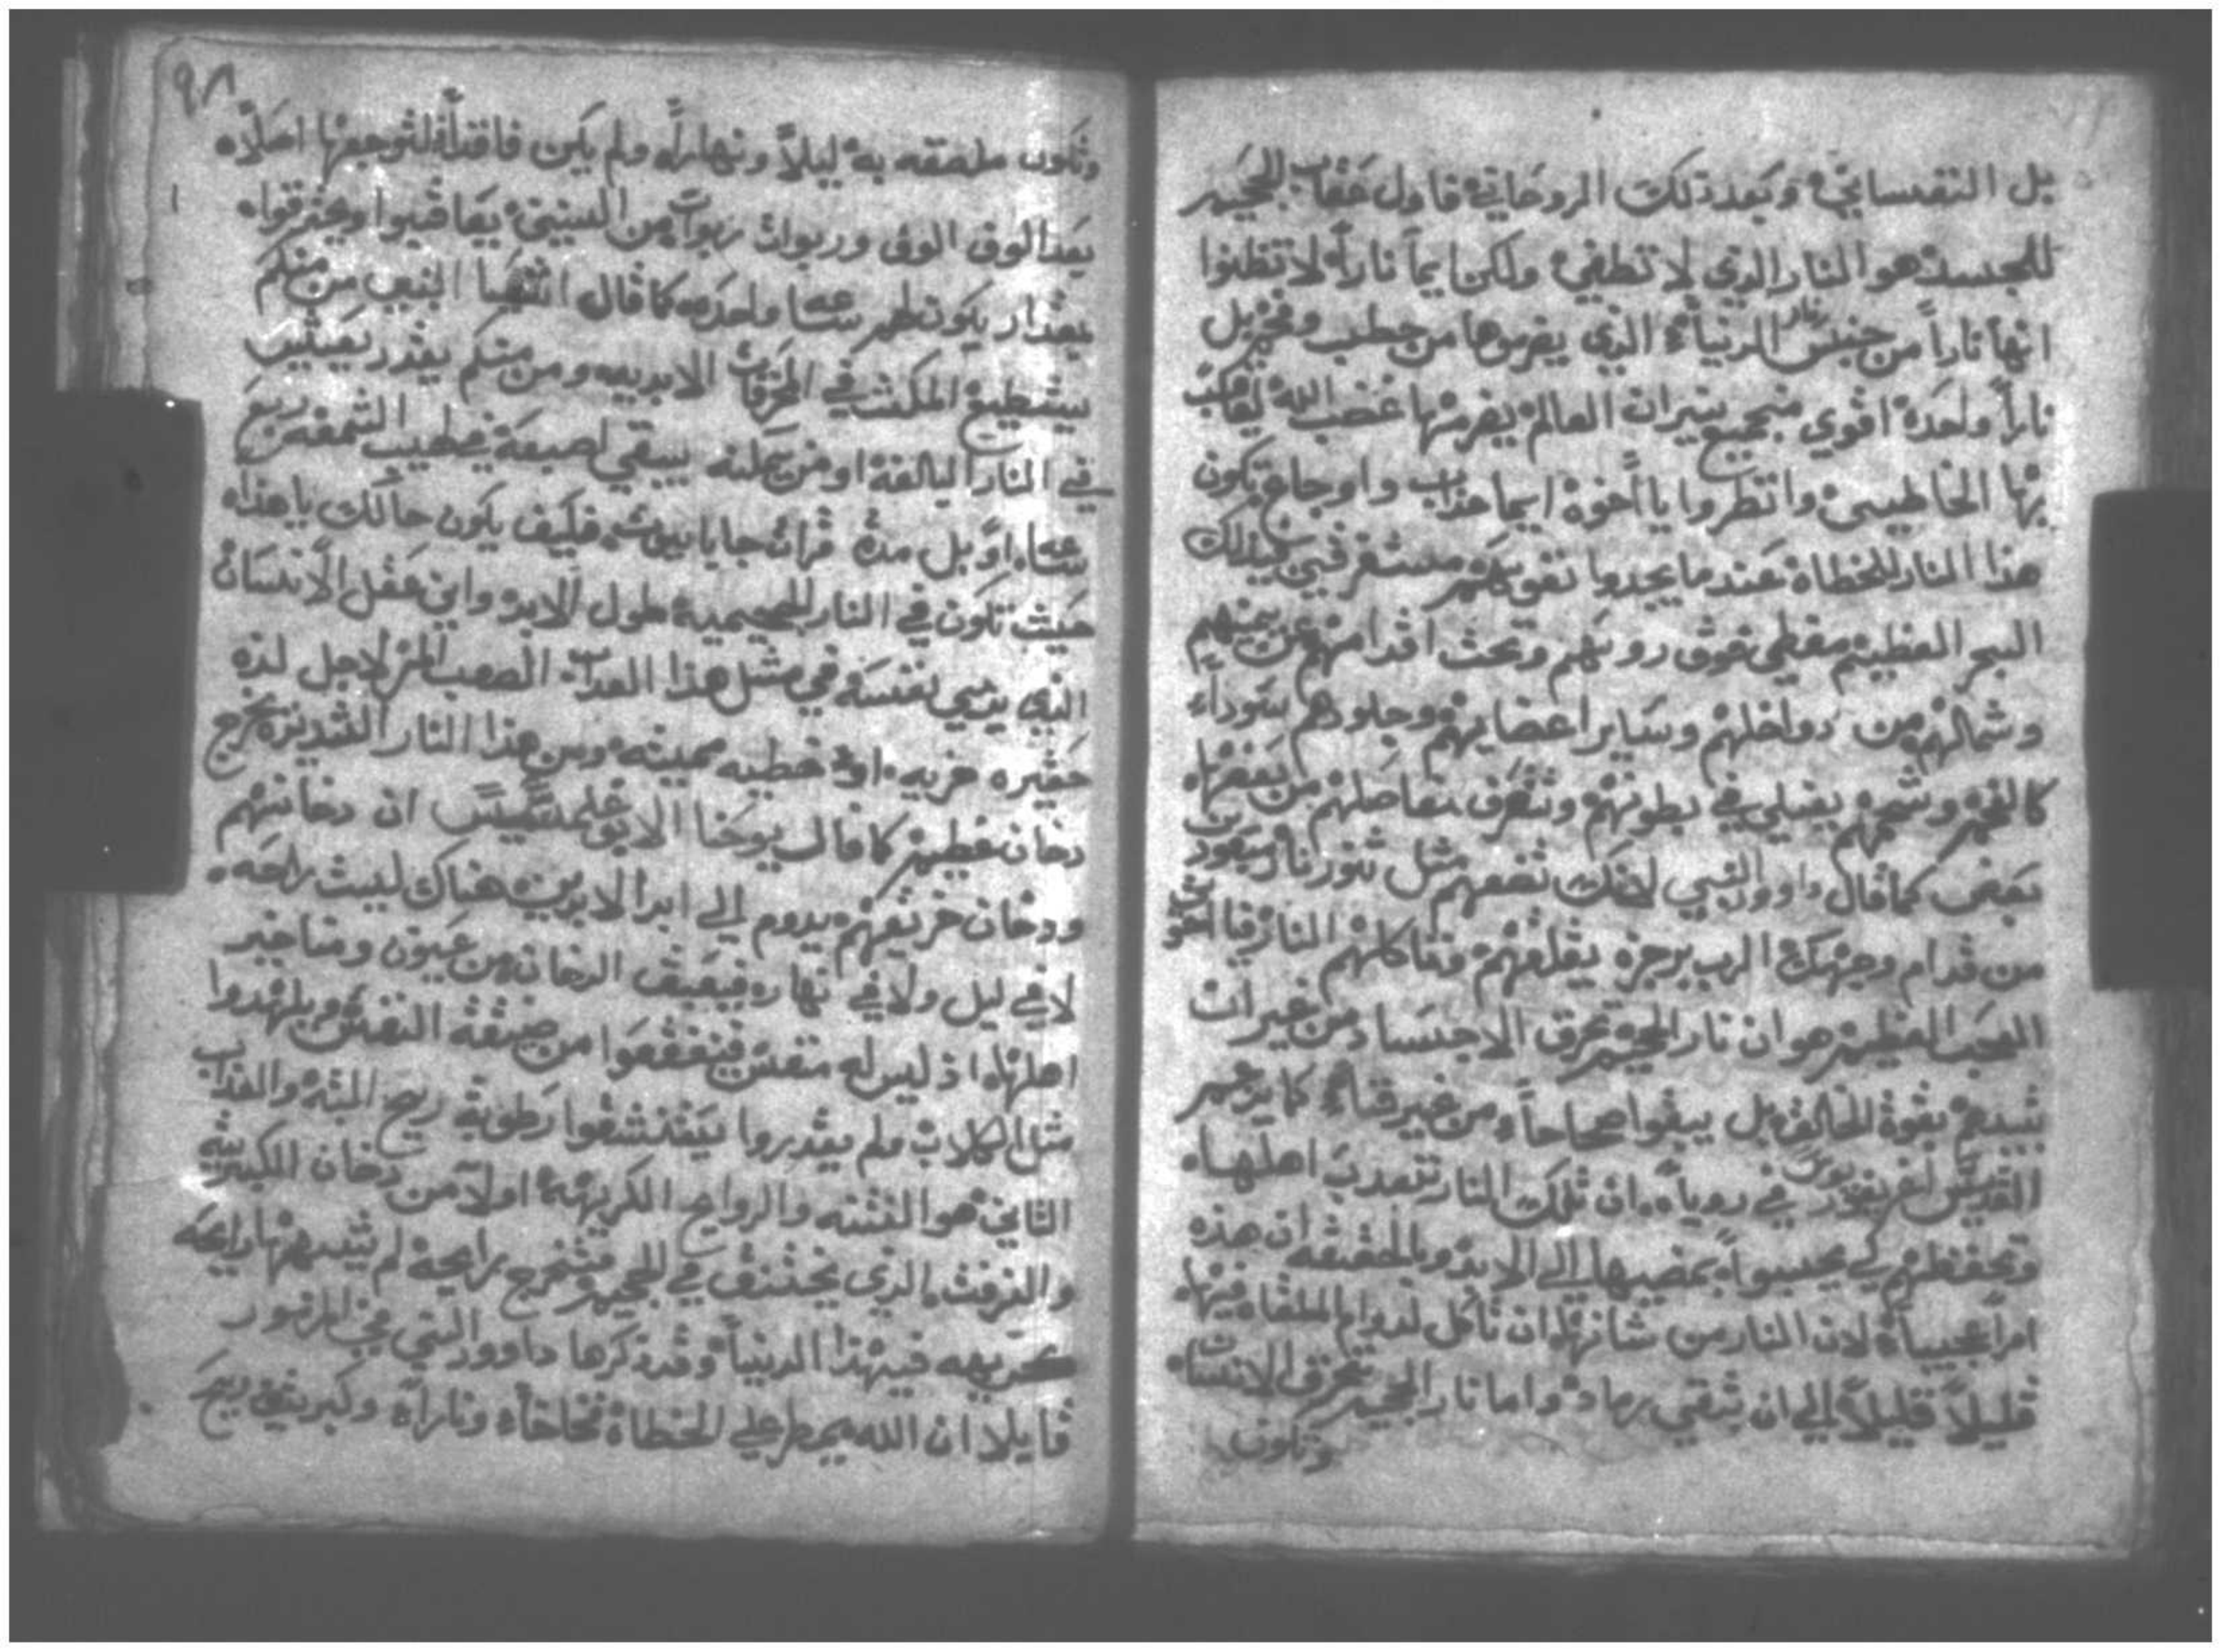 بل النفساني وبعد ذلك الروحاني فاول عقاب الجحيم
للجسد هو النار الذي لا تطفي ولكن ايما ناراً لا تظنوا
انها ناراً من جنس نار الدنيا الذي يضرموها من حطب وفحم بل
ناراً واحدة اقوي من جميع نيران العالم يضرمها غضب الله ليعاقب
بها الخاطيين وانظروا يا اخوة ايما عذاب واوجاع تكون
هذا النار للخطاة عندما يجدوا نفوسهم مستغرقين في ذلك
البحر العظيم مغطي فوق روسهم وتحت اقدامهم عن يمينهم
وشمالهم من دواخلهم وساير اعضايهم وجلودهم سوداء
كالفحم وشحمهم يغلي في بطونهم وتتفرق مفاصلهم من بعضها
بعض كما قال داوود النبي لانك تضعهم مثل تنور نار موقود
من قدام وجهك الرب برجزه يقلقهم وتاكلهم النار فالشي
العجب العظيم هو ان نار الجحيم تحرق الاجساد من غير ان
تبيدهم بقوة الخالق بل يبقوا صحاحاً ومن غير فناء كما يزعم
القديس في روياه ان تلك النار تعذب اهلها
وتحفظهم كي يحسبوا بمصيبها الي الابد وبالحقيقه ان هذه
امراً عجيباً لان النار من شانها ان تاكل لدوام الملقاه فيها
قليلاً قليلاً الي ان تبقي رماد واما نار الجحيم تحرق الانسان
وتكون
٩٨
وتكون ملصقه به ليلاً ونهاراً ولم يكن فاقداً لتوجعها اصلاً
بعد الوف الوف وربوات ربوات من السنين يعاقبوا ويحترقوا
بمقدار يكونلهم ساعه واحده كما قال اشعيا النبي من منكم
يستطيع المكث في المحرقات الابديه ومن منكم يقدر يعيش
في النار البالغة او من يمكنه يبقي اصبعه في لهيب الشمعه ربع
ساعه او بل مدة قراة فكيف يكون حالك يا هذا
حيث تكون في النار الجحيمية طول الابد واين عقل الانسان
الذي يرمي نفسه في مثل هذا العذاب الصعب المر لاجل لذه
حقيره خزيه او خطيه مميته ومن هذا النار الشديده يخرج
دخان عظيم كما قال يوحنا الابوغلمسيس ان دخانهم
ودخان حريقهم يدوم الي ابد الابدين هناك ليست راحه
لا في ليل ولا في نهار الدخان من عيون ومناخير
اهلها اذ ليس له متفس من ضيقة النفس ويلهدوا
مثل الكلاب ولم يقدروا يتنشقوا رطوبة ريح البته والعذاب
الثاني هو النتنه والروايح الكريهة اولاً من دخان الكبريت
والزفت الذي يختنق في الجحيم فتخرج رايحة لم تشبهها رايحه
كريهه في هذا الدنيا وقد ذكرها داوود النبي في المزمور
قايلا ان الله يمطر علي الخطاة فخاخاً وناراً وكبريت ريح